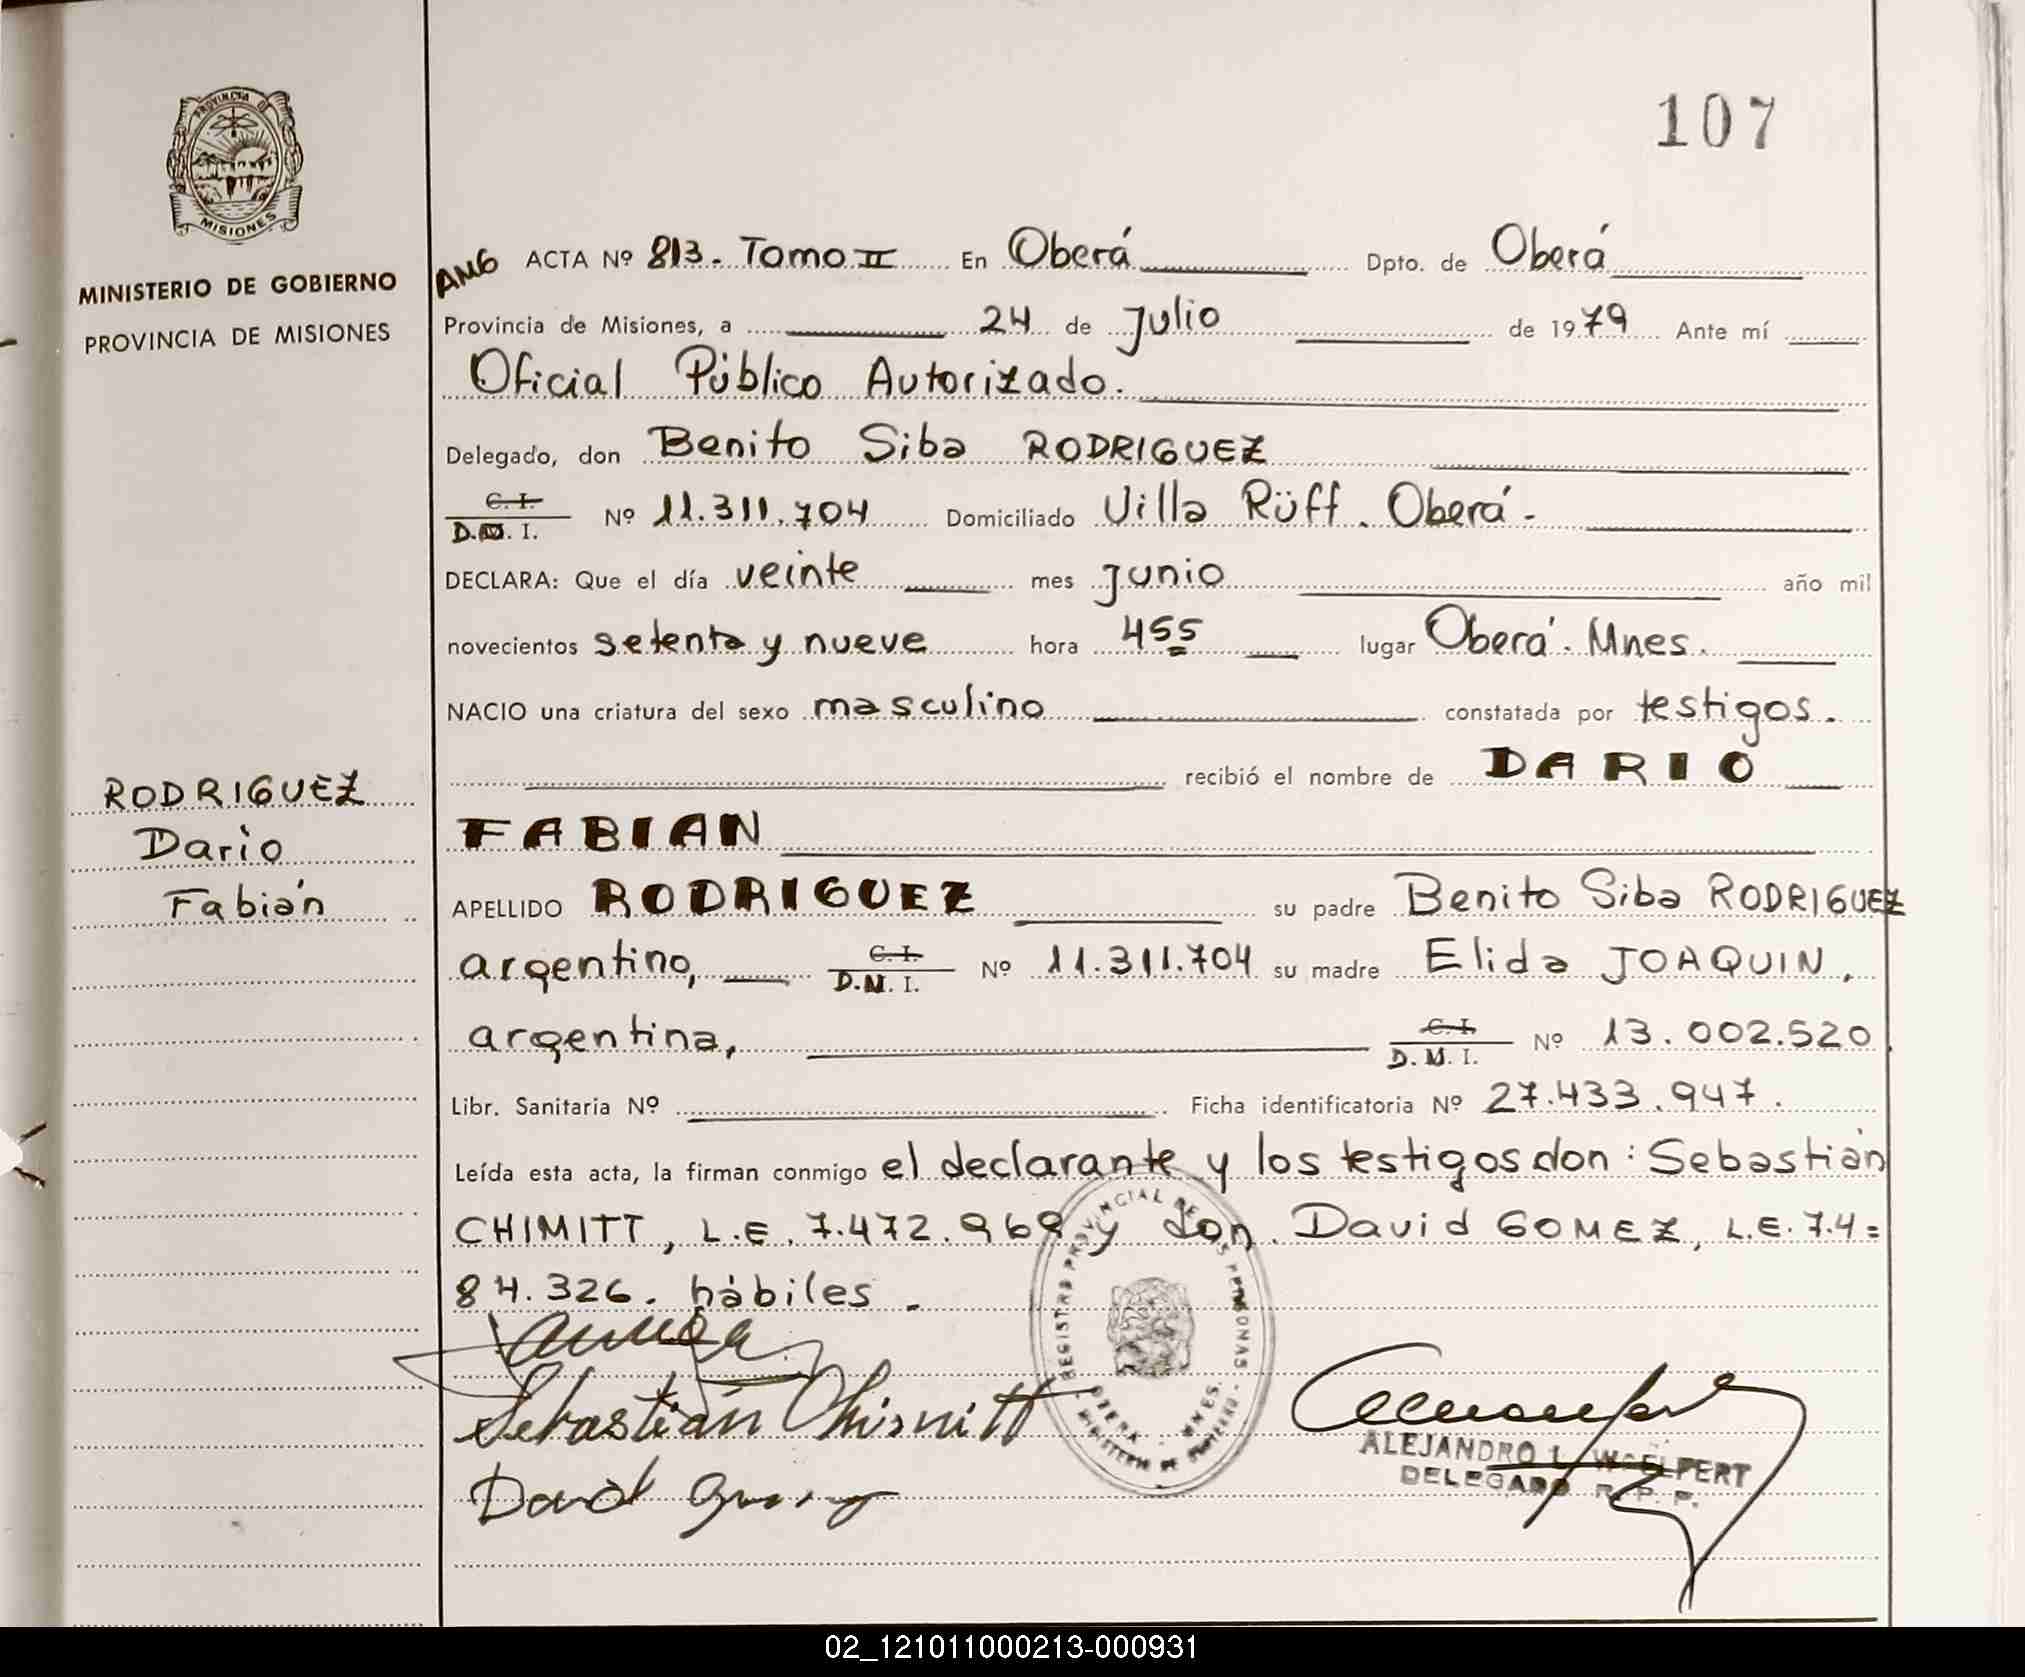 107
PROVINCIA DE
MISIONES
MINISTERIO DE GOBIERNO
PROVINCIA DE MISIONES
RODRIGUEZ
Dario
Fabián
AMG ACTA Nº 813. Tomo II En Oberá Dpto. de Oberá
Provincia de Misiones, a 24 de Julio de 1979 Ante mí
Oficial Público Autorizado.
Delegado, don Benito Siba RODRIGUEZ
C. I.
D.N. I. Nº 11.311.704 Domiciliado Villa Rüff. Oberá.
DECLARA: Que el día veinte mes junio año mil
novecientos setenta y nueve hora 455 lugar Oberá. Mnes.
NACIO una criatura del sexo masculino constatada por testigos.
recibió el nombre de DARIO
FABIAN
APELLIDO RODRIGUEZ su padre Benito Siba RODRIGUEZ
argentino, C. I. D.N. I. Nº 11.311.704 su madre Elida JOAQUIN,
argentina, C. I. D. N. I. Nº 13.002.520
Libr. Sanitaria Nº Ficha identificatoria Nº 27.433.947.
Leída esta acta, la firman conmigo el declarante y los testigos don: Sebastián
CHIMITT, L.E. 7.472.969 y don. David GOMEZ, L.E. 7.4=
84.326. hábiles.
REGISTRO PROVINCIAL DE LAS PERSONAS
OBERA - MNES.
MINISTERIO DE GOBIERNO
Sebastián Chimitt
David
ALEJANDRO L. WOELPERT
DELEGADO R. P. P.
02_121011000213-000931